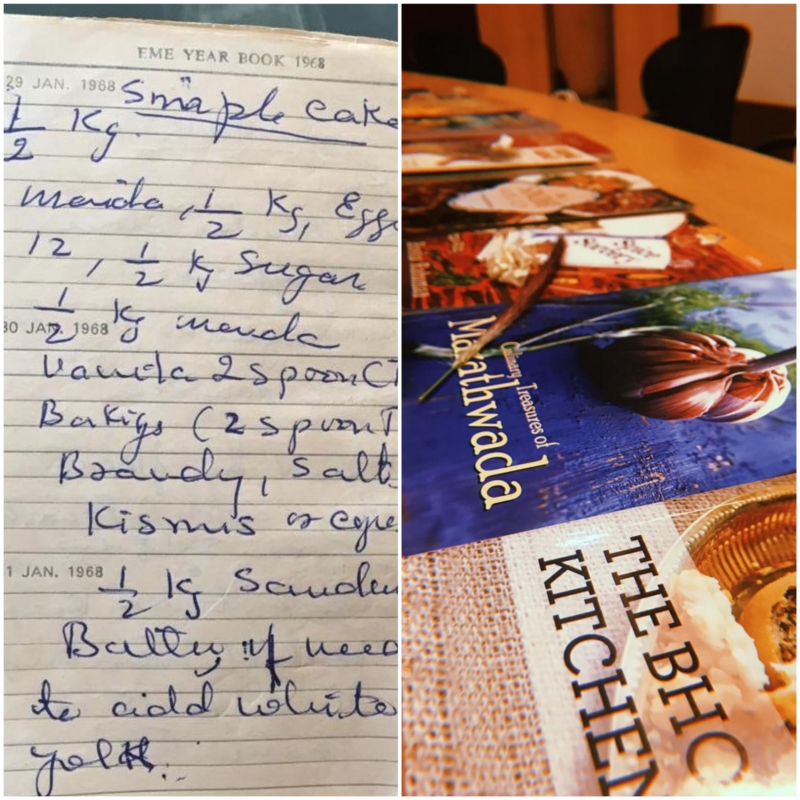 EME YEAR BOOK 1968
29 JAN. 1968 Smaple cake
1/2 Kg.
maida, 1/2 Kg, Egg
12, 1/2 Kg Sugar
1/2 Kg maida
30 JAN. 1968
2 spoon
(2 spoon
Brandy, Salt
Kismis or
1 JAN. 1968 1/2 Kg
if need
to add white
yolk.
Culinary Treasures of
Marathwada
THE BHO
KITCHEN